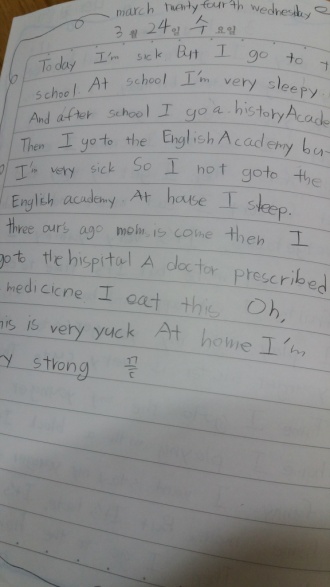 march twenty fourth wednesday
3월 24일 수요일
Today I'm sick But I go to
school. At school I'm very sleepy.
And after school I go a history Acade
Then I go to the English Academy bu
I'm very sick So I not goto the
English academy. At house I sleep.
three our's ago mom is come then I
go to the hispital A doctor prescribed
medicicne I eat this Oh,
his is very yuck At home I'm
ry strong